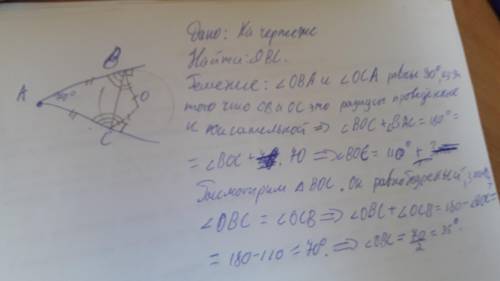 Дано: На чертеже
Найти: OBC.
Решение: ∠OBA и ∠OCA равны 90°, из за
того что OB и OC это радиусы проведенные
к касательной => ∠BOC + ∠BAC = 180° =
= ∠BOC + 70 => ∠BOC = 110°
Посмотрим ΔBOC. Он равнобедренный, значит
∠OBC = ∠OCB => ∠OBC + ∠OCB = 180 - ∠BOC =
= 180 - 110 = 70°. => ∠OBC = 70/2 = 35°.
A
B
70°
O
C